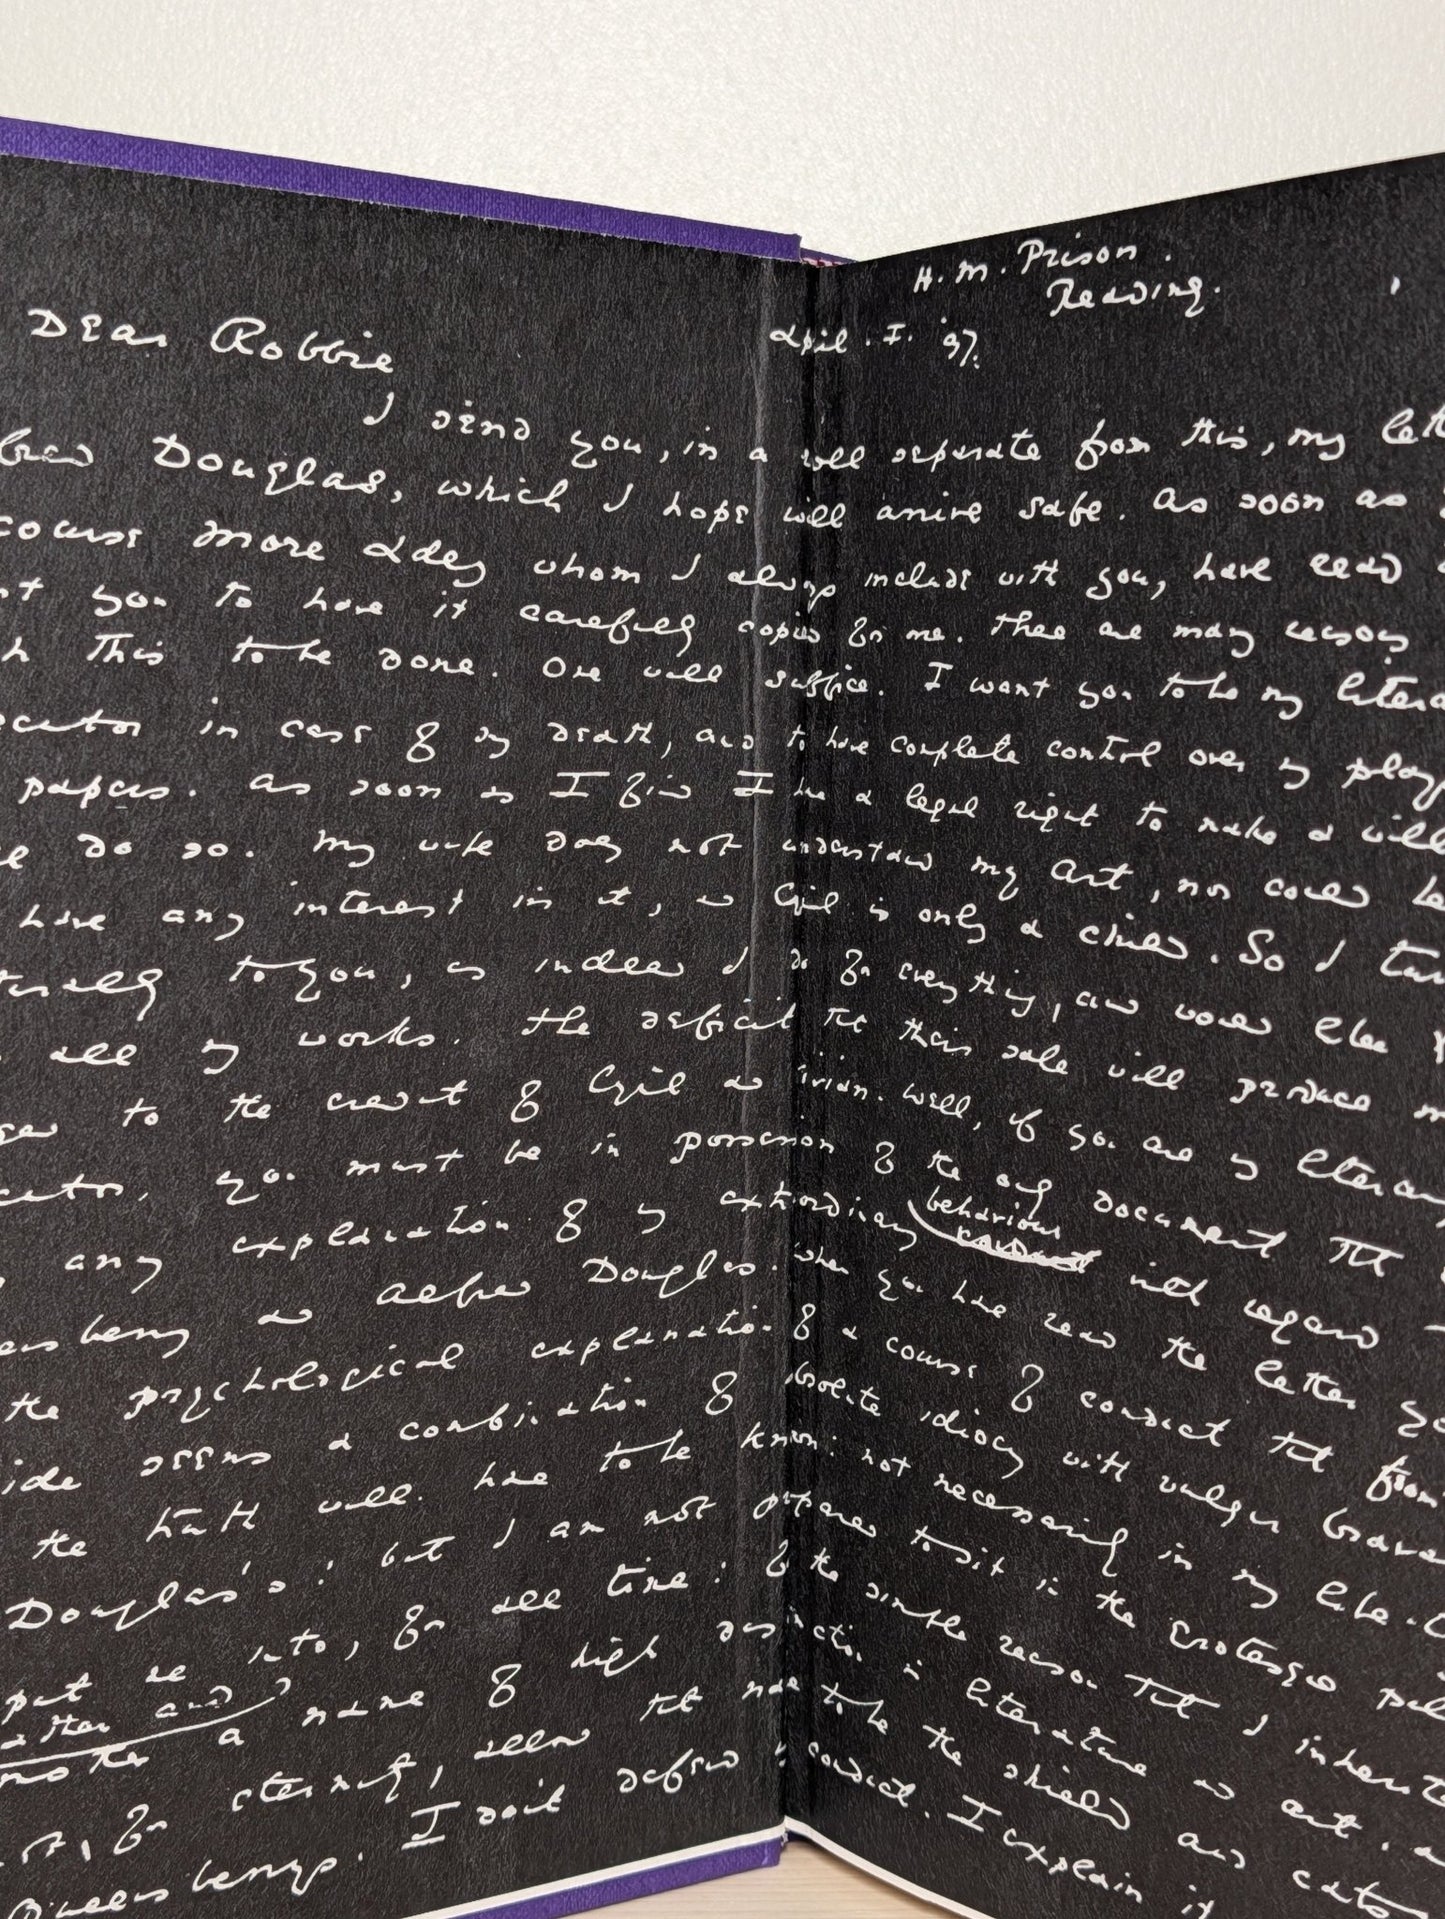 H.M. Prison.
Reading.
April. I. 97.
Dear Robbie
I send you, in a roll separate from this, my lett
fred Douglas, which I hope will arrive safe. As soon as
course more Adey whom I always include with you, have read
nt you to have it carefully copied for me. There are many reasons
h this to be done. One will suffice. I want you to be my litera
ecutor in case of my death, and to have complete control over my plays
papers. As soon as I find I have a legal right to make a will
do so. My wife does not understand my art, nor could be
have any interest in it, and Cyril is only a child. So I turn
turally to you, as indeed I do for everything, and would like
all my works. The deficit that their sale will produce
to the credit of Cyril and Vivian. Well, if you are my literary
cutor, you must be in possession of the only document that
behaviour
any explanation of my extraordinary conduct with regard
eensberry and Alfred Douglas. When you have read the letter you
the psychological explanation of a course of conduct that from
ide seems a combination of absolute idiocy with vulgar brava
the truth will have to be known: not necessarily in my life-
Douglas's: but I am not prepared to sit in the grotesque pil
put me into, for all time: for the simple reason that I inherite
father and
mother a name of high distinction in literature and art,
for eternity, allow that name to be the shield and cats
Queensberrys. I don't defend my conduct. I explain it